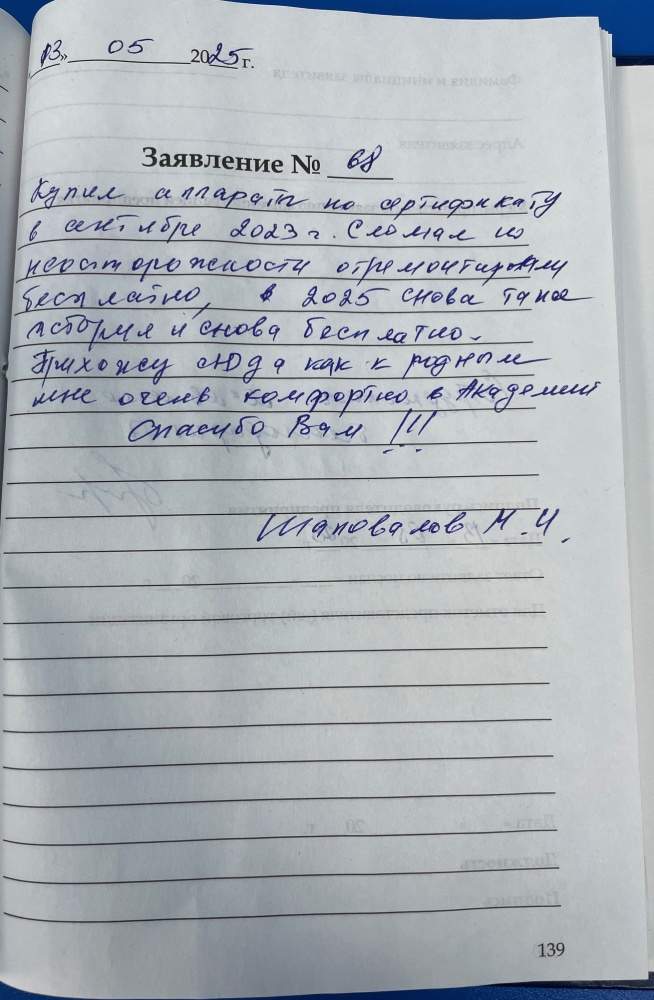 13» 05 2025 г.
Заявление № 68
Купил аппараты по сертификату
в сентябре 2023 г. Сломал по
неосторожности отремонтировали
бесплатно, в 2025 снова такая
история и снова бесплатно.
Прихожу сюда как к родным
мне очень комфортно в Академии
Спасибо Вам !!!
Шаповалов М. И.
139